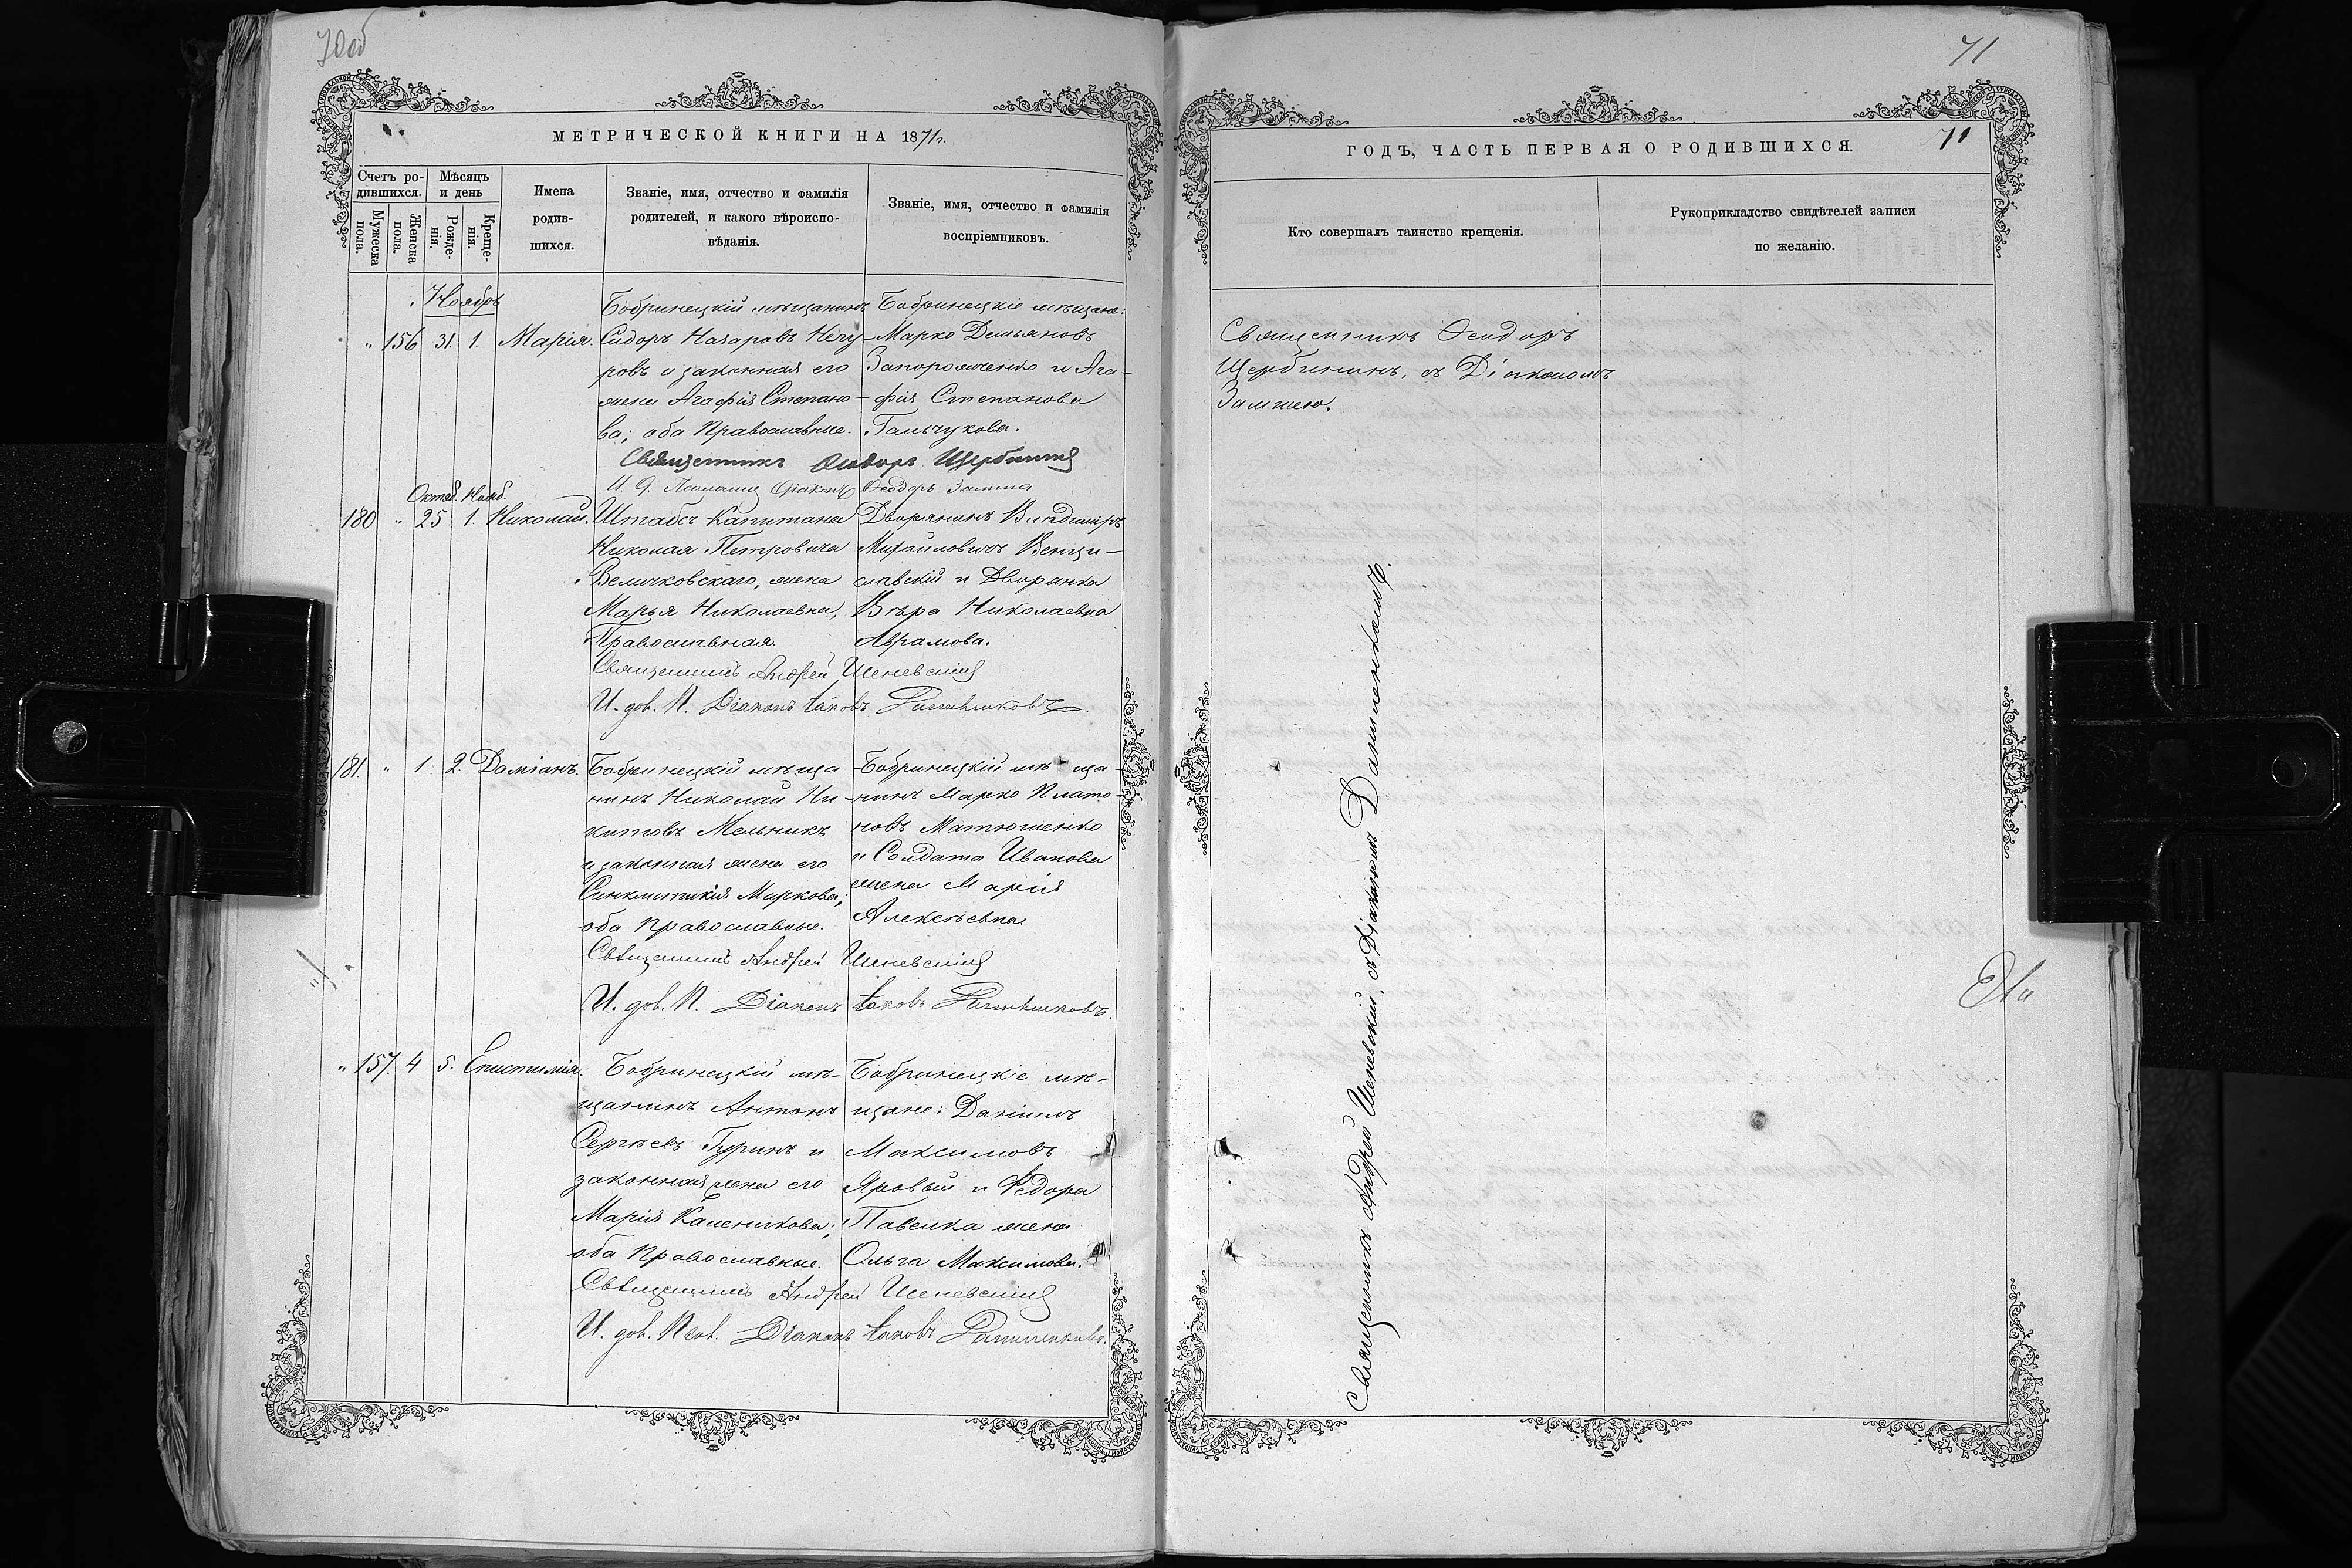 70об
МЕТРИЧЕСКОЙ КНИГИ НА 1871г.
Счетъ ро-
дившихся.
Мужеска
пола.
Женска
пола.
Мѣсяцъ
и день
Рожде-
нія.
Креще-
нія.
Имена
родив-
шихся.
Званіе, имя, отчество и фамилія
родителей, и какого вѣроиспо-
вѣданія.
Званіе, имя, отчество и фамилія
воспріемниковъ.
Ноябрь
„ 156 31. 1. Марія.
Бобринецкій мѣщанинъ
Сидоръ Назаровъ Нечу-
ровъ и законная его
жена Агафія Степано-
ва; оба Православные.
Бобринецкіе мѣщане:
Марко Демьяновъ
Запорожченко и Ага-
фія Степанова
Гальчукова.
Священникъ Ѳеодоръ Щербининъ
И. д. Псаломщ. Діаконъ Ѳеодоръ Замша
Октяб. Нояб.
180 „ 25 1. Николай.
Штабсъ Капитана
Николая Петровича
Величковскаго, жена
Марья Николаевна,
Православная.
Дворянинъ Владиміръ
Михайловичъ Венци-
славскій и Дворянка
Вѣра Николаевна
Аврамова.
Священникъ Андрей Шеневскій
И. дов. П. Діаконъ Іаковъ
181. „ 1 2. Даміанъ.
Бобринецкій мѣща
нинъ Николай Ни-
китовъ Мельникъ
и законная жена его
Синклитикія Маркова;
оба Православные.
Бобринецкій мѣща-
нинъ Марко Плато-
новъ Матюшенко
и Солдата Иванова
жена Марія
Алексѣевна
Священникъ Андрей Шеневскій
И. дов. П. Діаконъ Іаковъ
„ 157. 4 5. Епистимія.
Бобринецкій мѣ-
щанинъ Антонъ
Сергѣевъ Гуринъ и
законная жена его
Марія Каленикова;
оба Православные.
Бобринецкіе мѣ-
щане: Даніилъ
Максимовъ
Яровый и Ѳедора
Павенка жена
Ольга Максимова.
Священникъ Андрей Шеневскій
И. дов. Діаконъ Іаковъ
71
ГОДЪ, ЧАСТЬ ПЕРВАЯ О РОДИВШИХСЯ.
71
Кто совершалъ таинство крещенія.
Рукоприкладство свидѣтелей записи
по желанію.
Священникъ Ѳеодоръ
Щербининъ, съ Діакономъ
Замшею.
Священникъ Андрей Шеневскій, съ Діакономъ Данпленковымъ.